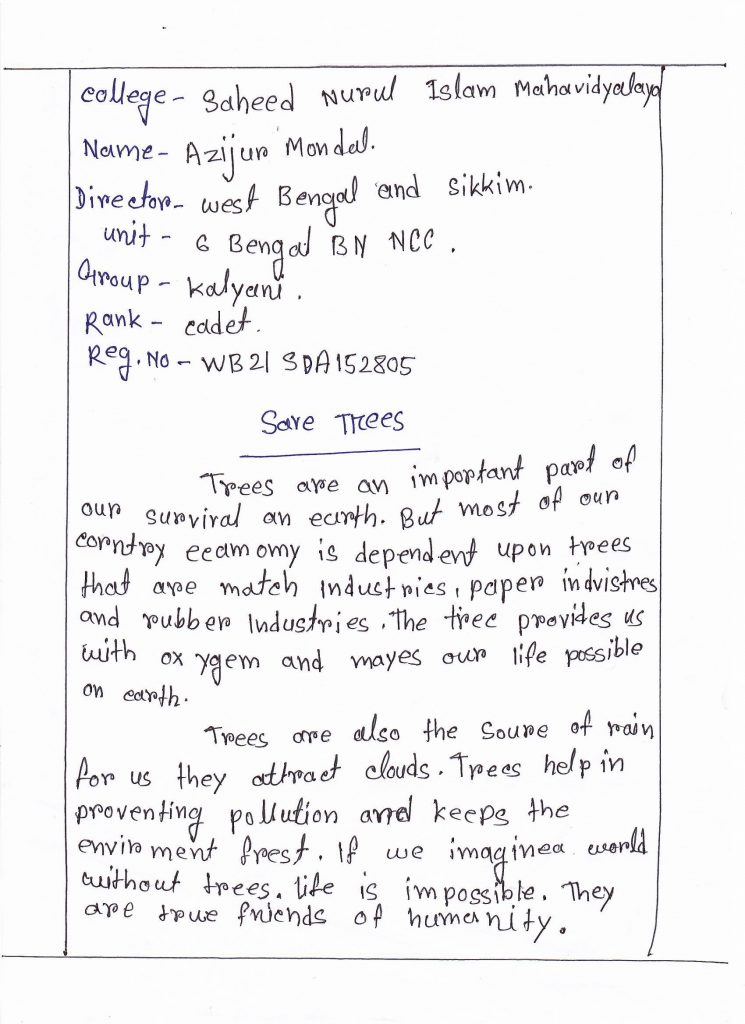 college - Saheed Nurul Islam Mahavidyalaya
Name - Azijur Mondal.
Director - west Bengal and Sikkim.
unit - 6 Bengal BN NCC.
Group - Kalyani.
Rank - cadet.
Reg. No - WB21SDA152805
Save Trees
Trees are an important part of
our survival an earth. But most of our
corntry ecamomy is dependent upon trees
that are match Industries, paper indvistres
and rubber Industries. The tree provides us
with oxygem and mayes our life possible
on earth.
Trees are also the Soure of rain
for us they attract clouds. Trees help in
proventing pollution and keeps the
envirment frest. If we imaginea world
without trees. life is impossible. They
are true friends of humanity.